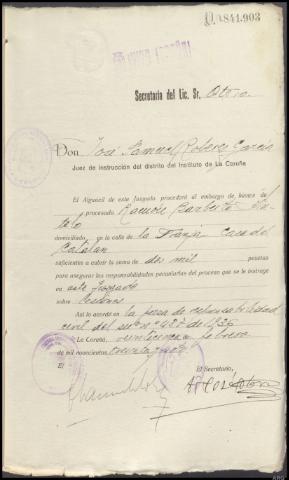 0.841.903
Secretaria del Lic. Sr. Otero
Don José Samuel Roberes García
Juez de instrucción del distrito del Instituto de La Coruña
El Alguacil de este Juzgado procederá al embargo de bienes de
procesado, Ramón Barbeito
domiciliado en la calle de la Franja casa del
Catalan
suficientes a cubrir la suma de dos mil pesetas
para asegurar las responsabilidades pecuniarias del proceso que se instruye
en este Juzgado
sobre lesiones
Así lo acordé en la pieza de responsabilidad
civil del sumº nº 427 de 1936
La Coruña, veintinueve febrero
de mil novecientos treinta y
El
El Secretario,